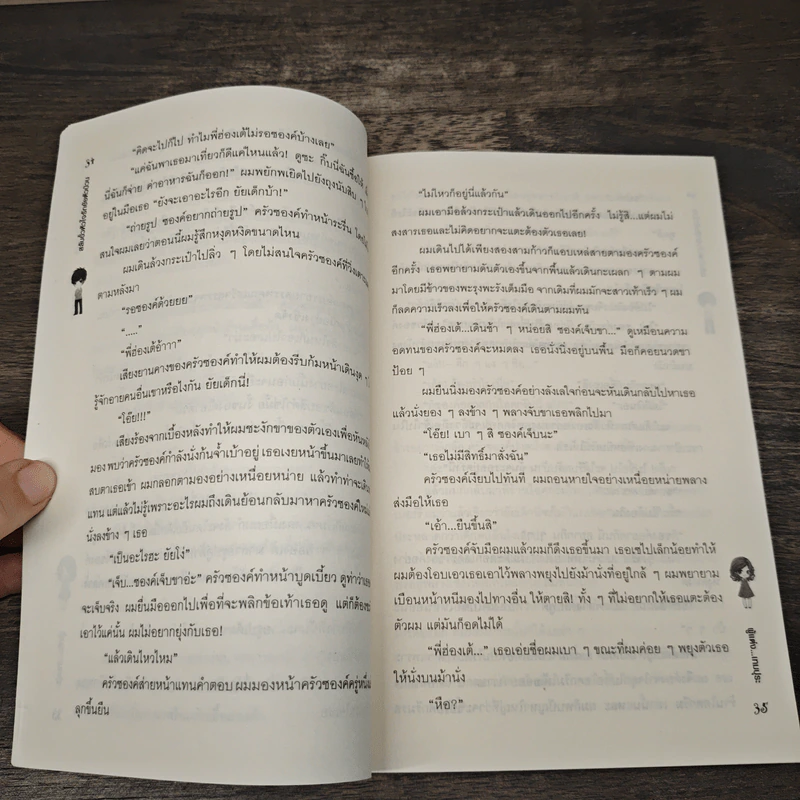 34
“คิดจะไปก็ไป ทำไมพี่ฮ่องเต้ไม่รอซองค์บ้างเลย”
“แค่ฉันพาเธอมาเที่ยวก็ดีแค่ไหนแล้ว! ดูซะ กิ๊บนี่ฉันซื้อให้
นี่ฉันก็จ่าย ค่าอาหารฉันก็ออก!” ผมพยักพเยิดไปยังถุงนับสิบ
อยู่ในมือเธอ “ยังจะเอาอะไรอีก ยัยเด็กบ้า!”
“ถ่ายรูป ซองค์อยากถ่ายรูป” ครัวซองค์ทำหน้าระรื่น
สนใจผมเลยว่าตอนนี้ผมรู้สึกหงุดหงิดขนาดไหน
ผมเดินล้วงกระเป๋าไปลิ่ว ๆ โดยไม่สนใจครัวซองค์ที่วิ่ง
ตามหลังมา
“รอซองค์ด้วยยย”
“.....”
“พี่ฮ่องเต้อ้าาา”
เสียงยานคางของครัวซองค์ทำให้ผมต้องรีบก้มหน้าเดินงุด ๆ
รู้จักอายคนอื่นเขาหรือไงกัน ยัยเด็กนี่!
“โอ๊ย!!!”
เสียงร้องจากเบื้องหลังทำให้ผมชะงักขาของตัวเองเพื่อหัน
มอง พบว่าครัวซองค์กำลังนั่งก้นจ้ำเบ้าอยู่ เธอเงยหน้าขึ้นมาเลยทำให้
สบตาเธอเข้า ผมกลอกตามองอย่างเหนื่อยหน่าย แล้วทำท่าจะเดิน
แทน แต่แล้วไม่รู้เพราะอะไรผมถึงเดินย้อนกลับมาหาครัวซองค์
นั่งลงข้าง ๆ เธอ
“เป็นอะไรฮะ ยัยโง่”
“เจ็บ...ซองค์เจ็บขาอ่ะ” ครัวซองค์ทำหน้าบูดเบี้ยว ดูท่าว่า
จะเจ็บจริง ผมยื่นมือออกไปเพื่อที่จะพลิกข้อเท้าเธอดู แต่ก็ต้อง
เอาไว้แค่นั้น ผมไม่อยากยุ่งกับเธอ!
“แล้วเดินไหวไหม”
ครัวซองค์ส่ายหน้าแทนคำตอบ ผมมองหน้าครัวซองค์ครู่
ลุกขึ้นยืน
“ไม่ไหวก็อยู่นี่แล้วกัน”
ผมเอามือล้วงกระเป๋าแล้วเดินออกไปอีกครั้ง ไม่รู้สิ...แต่ผมไม่
สงสารเธอและไม่คิดอยากจะแตะต้องตัวเธอเลย!
ผมเดินไปได้เพียงสองสามก้าวก็แอบเหล่สายตามองครัวซองค์
อีกครั้ง เธอพยายามดันตัวเองขึ้นจากพื้นแล้วเดินกะเผลก ๆ ตามผม
มาโดยมีข้าวของพะรุงพะรังเต็มมือ จากเดิมที่ผมมักจะสาวเท้าเร็ว ๆ ผม
ก็ลดความเร็วลงเพื่อให้ครัวซองค์เดินตามผมทัน
“พี่ฮ่องเต้...เดินช้า ๆ หน่อยสิ ซองค์เจ็บขา...” ดูเหมือนความ
อดทนของครัวซองค์จะหมดลง เธอนั่งนิ่งอยู่บนพื้น มือก็คอยนวดขา
ป้อย ๆ
ผมยืนนิ่งมองครัวซองค์อย่างลังเลใจก่อนจะหันเดินกลับไปหาเธอ
แล้วนั่งยอง ๆ ลงข้าง ๆ พลางจับขาเธอพลิกไปมา
“โอ๊ย! เบา ๆ สิ ซองค์เจ็บนะ”
“เธอไม่มีสิทธิ์มาสั่งฉัน”
ครัวซองค์เงียบไปทันที ผมถอนหายใจอย่างเหนื่อยหน่ายพลาง
ส่งมือให้เธอ
“เอ้า...ยืนขึ้นสิ”
ครัวซองค์จับมือผมแล้วผมก็ดึงเธอขึ้นมา เธอเซไปเล็กน้อยทำให้
ผมต้องโอบเอวเธอเอาไว้พลางพยุงไปยังม้านั่งที่อยู่ใกล้ ๆ ผมพยายาม
เบือนหน้าหนีมองไปทางอื่น ให้ตายสิ! ทั้ง ๆ ที่ไม่อยากให้เธอแตะต้อง
ตัวผม แต่มันก็อดไม่ได้
“พี่ฮ่องเต้...” เธอเอ่ยชื่อผมเบา ๆ ขณะที่ผมค่อย ๆ พยุงตัวเธอ
ให้นั่งบนม้านั่ง
“หือ?”
35